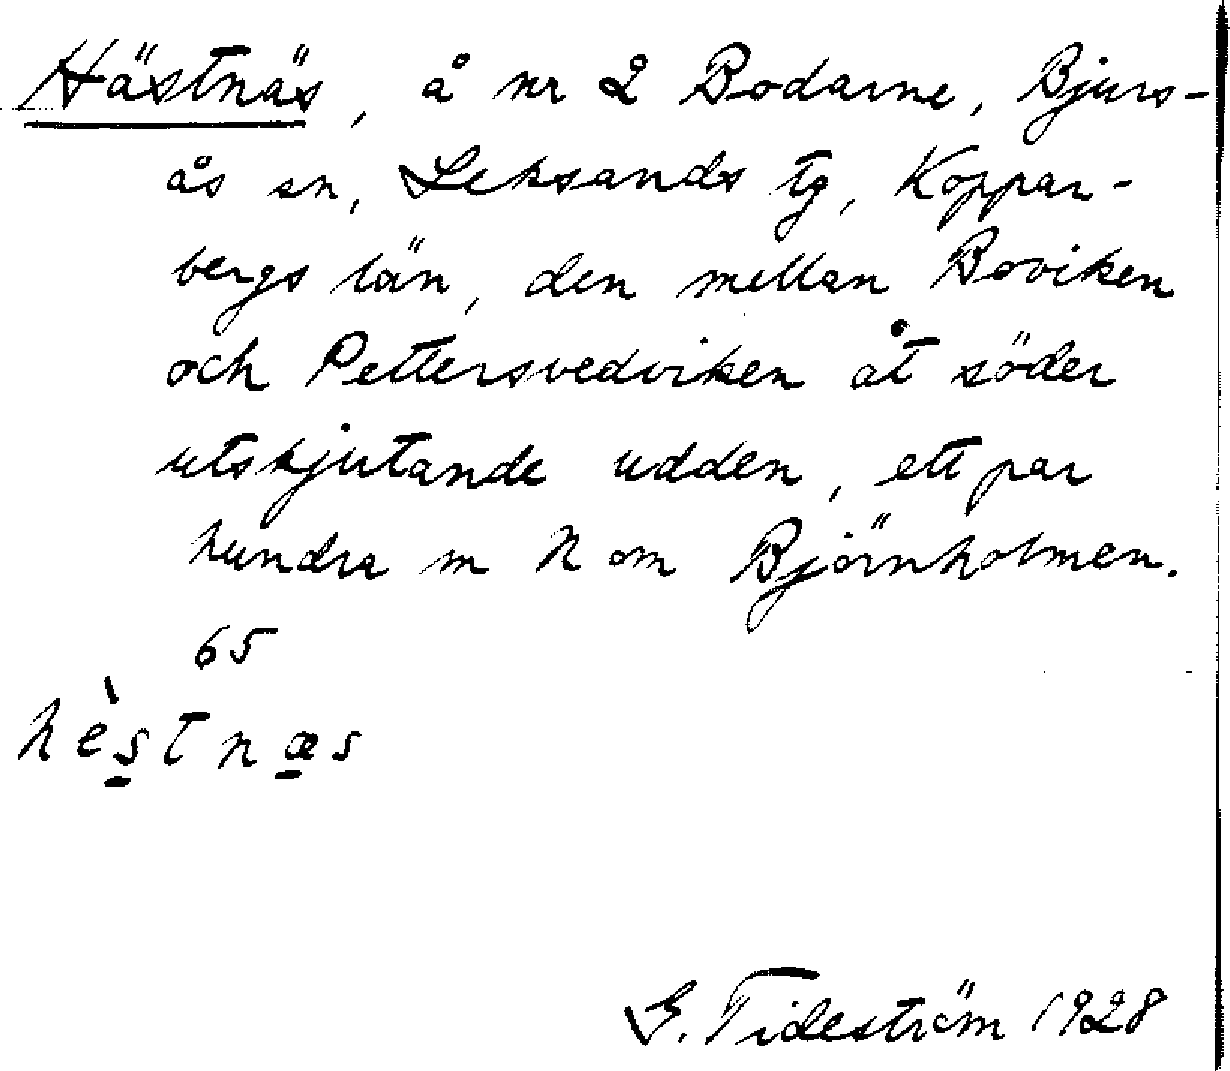 Hästnäs, å nr 2 Bodarne, Bjurs-
ås sn, Leksands tg, Koppar-
bergs län, den mellan Boviken
och Pettersvedviken åt söder
utskjutande udden, ett par
hundra m N om Björnholmen.
65
hès̲tnæ̲s
G. Tideström 1928